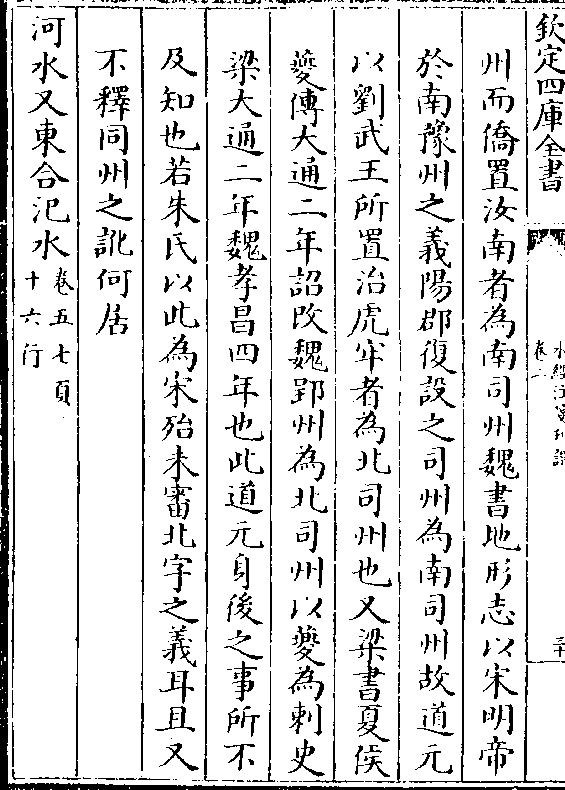 欽定四庫全書
水經注箋刊誤
卷二
三十
州而僑置汝南者為南司州魏書地形志以宋明帝
於南豫州之義陽郡復設之司州為南司州故道元
以劉武王所置治虎牢者為北司州也又梁書夏侯
夔傳大通二年詔改魏郢州為北司州以夔為刺史
梁大通二年魏孝昌四年也此道元身後之事所不
及知也若朱氏以此為宋殆未審北字之義耳且又
不釋同州之訛何居
河水又東合汜水卷五七頁十六行